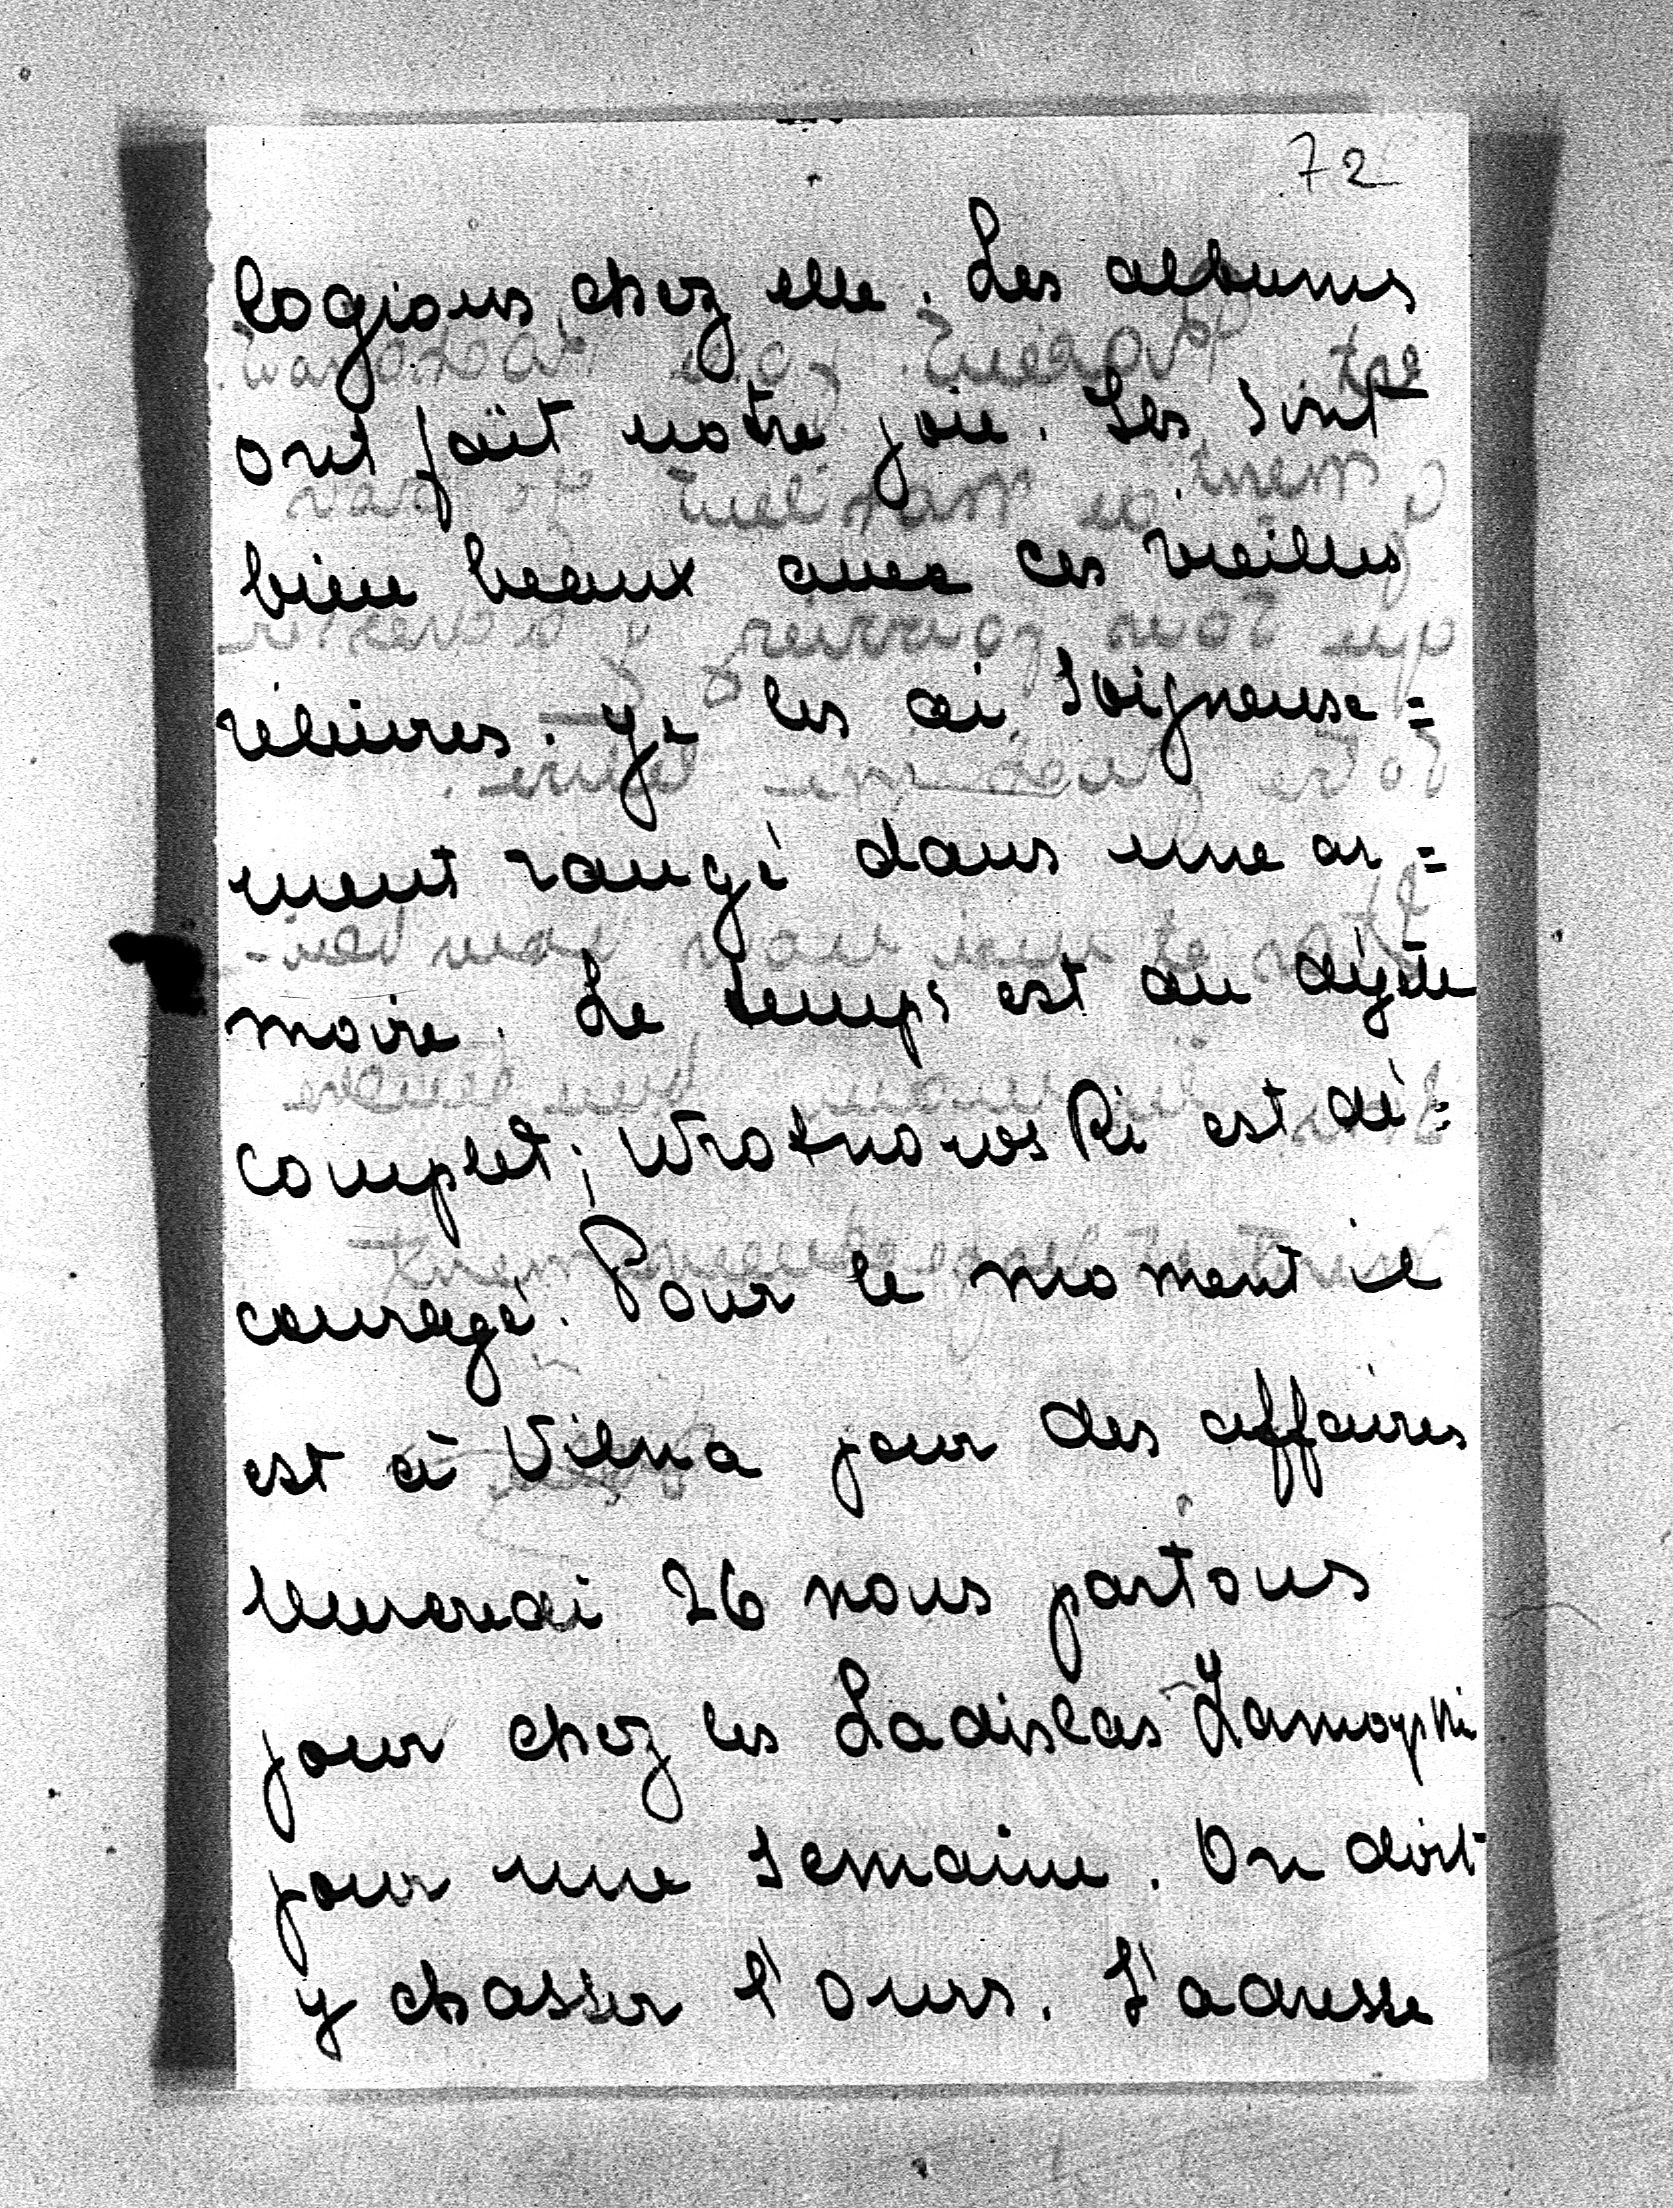 72
logions chez elle. Les albums
ont fait notre joie. Ils sont
bien beaux avec ces vieilles
reliures. Je les ai soigneuse=
ment rangé dans une ar=
moire. Le temps est au dégèle
complet; Wrotnowski est dé=
couragé. Pour le moment il
est à Vilna pour des affaires
Mercredi 26 nous partons
pour chez les Ladislas Zamoyski
pour une semaine. On doit
y chasser l'ours. L'adresse